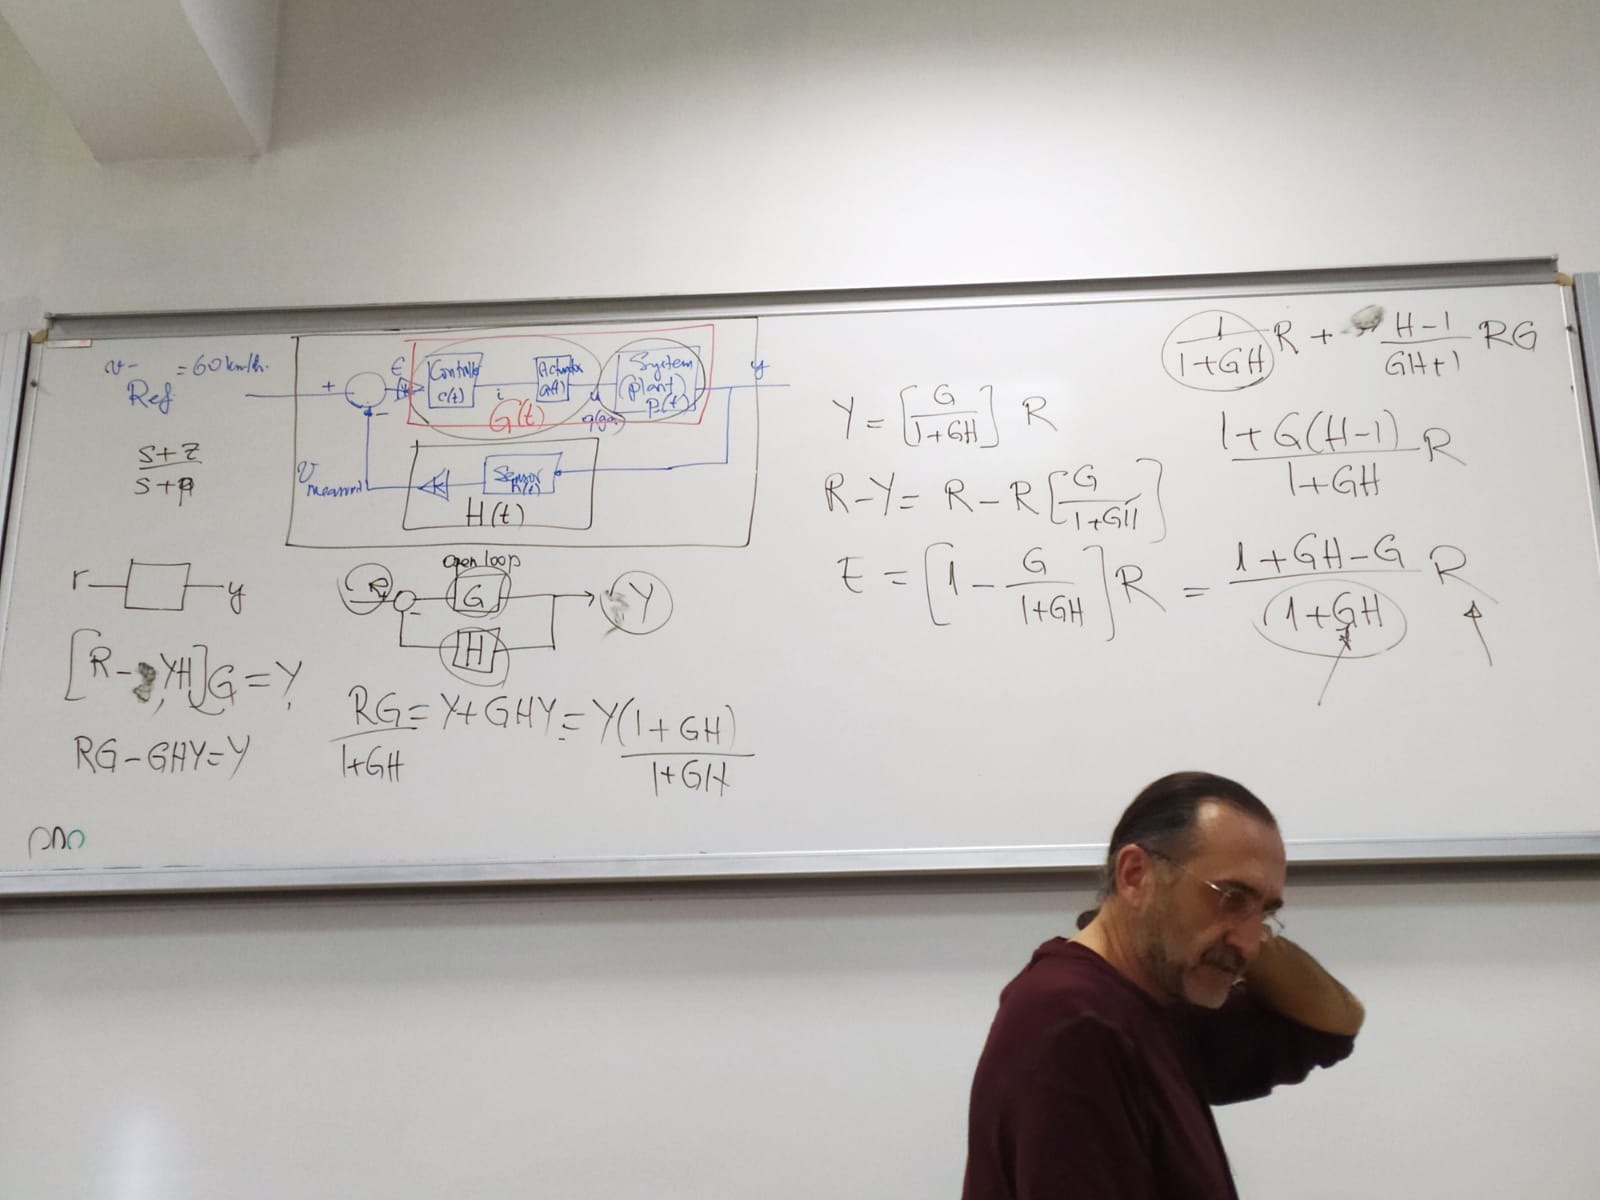 v- = 60 km/h.
Ref
+
-
E
Controller
c(t)
i
Actuator
a(t)
u
System
(plant)
p(t)
y
G(t)
V measured
K
Sensor
h(t)
H(t)
s+z
s+p
r
y
open loop
R
-
G
Y
H
[R- YH]G = Y
RG-GHY=Y
RG = Y+GHY = Y(1+GH)
1+GH
1+GH
Y = [G / 1+GH] R
R-Y = R-R [G / 1+GH]
E = [1 - G / 1+GH] R = 1+GH-G / 1+GH R
1 / 1+GH R + H-1 / GH+1 RG
1+G(H-1) / 1+GH R